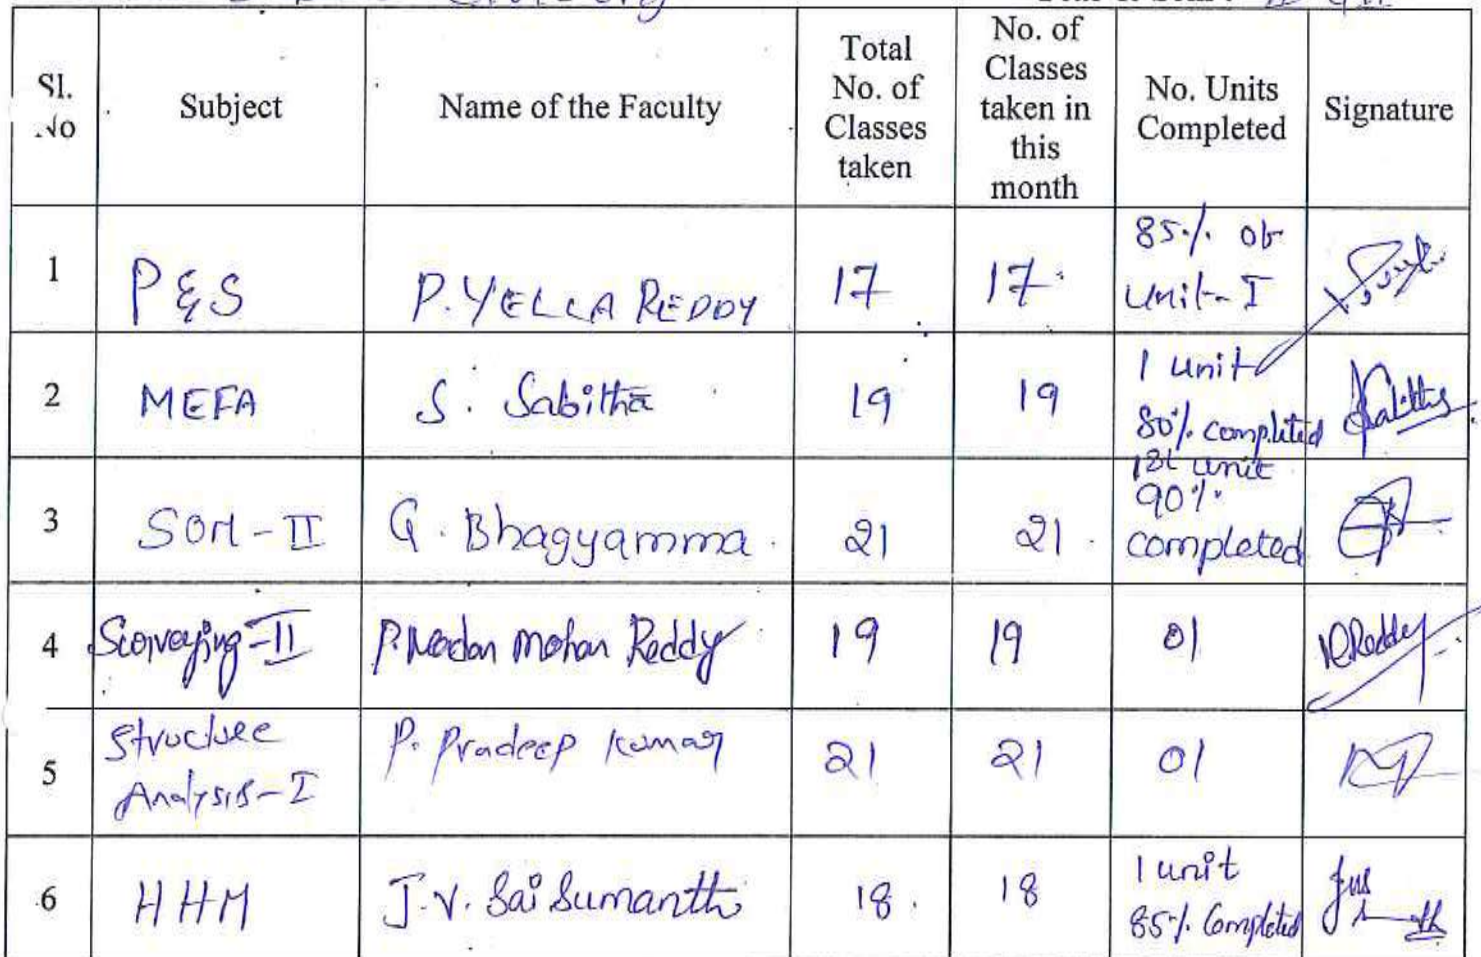 Sl. No | Subject | Name of the Faculty | Total No. of Classes taken | No. of Classes taken in this month | No. Units Completed | Signature
1 | P&S | P. YELLA REDDY | 17 | 17 | 85% of Unit-I |
2 | MEFA | S. Sabitha | 19 | 19 | 1 unit 80% completed | Sabitha
3 | SOM-II | G. Bhagyamma | 21 | 21 | 1st unit 90% completed |
4 | Surveying-II | P. Madan Mohan Reddy | 19 | 19 | 01 | Reddy
5 | Structure Analysis-I | P. Pradeep Kumar | 21 | 21 | 01 |
6 | HHM | J.V. Sai Sumanth | 18 | 18 | 1 unit 85% Completed |